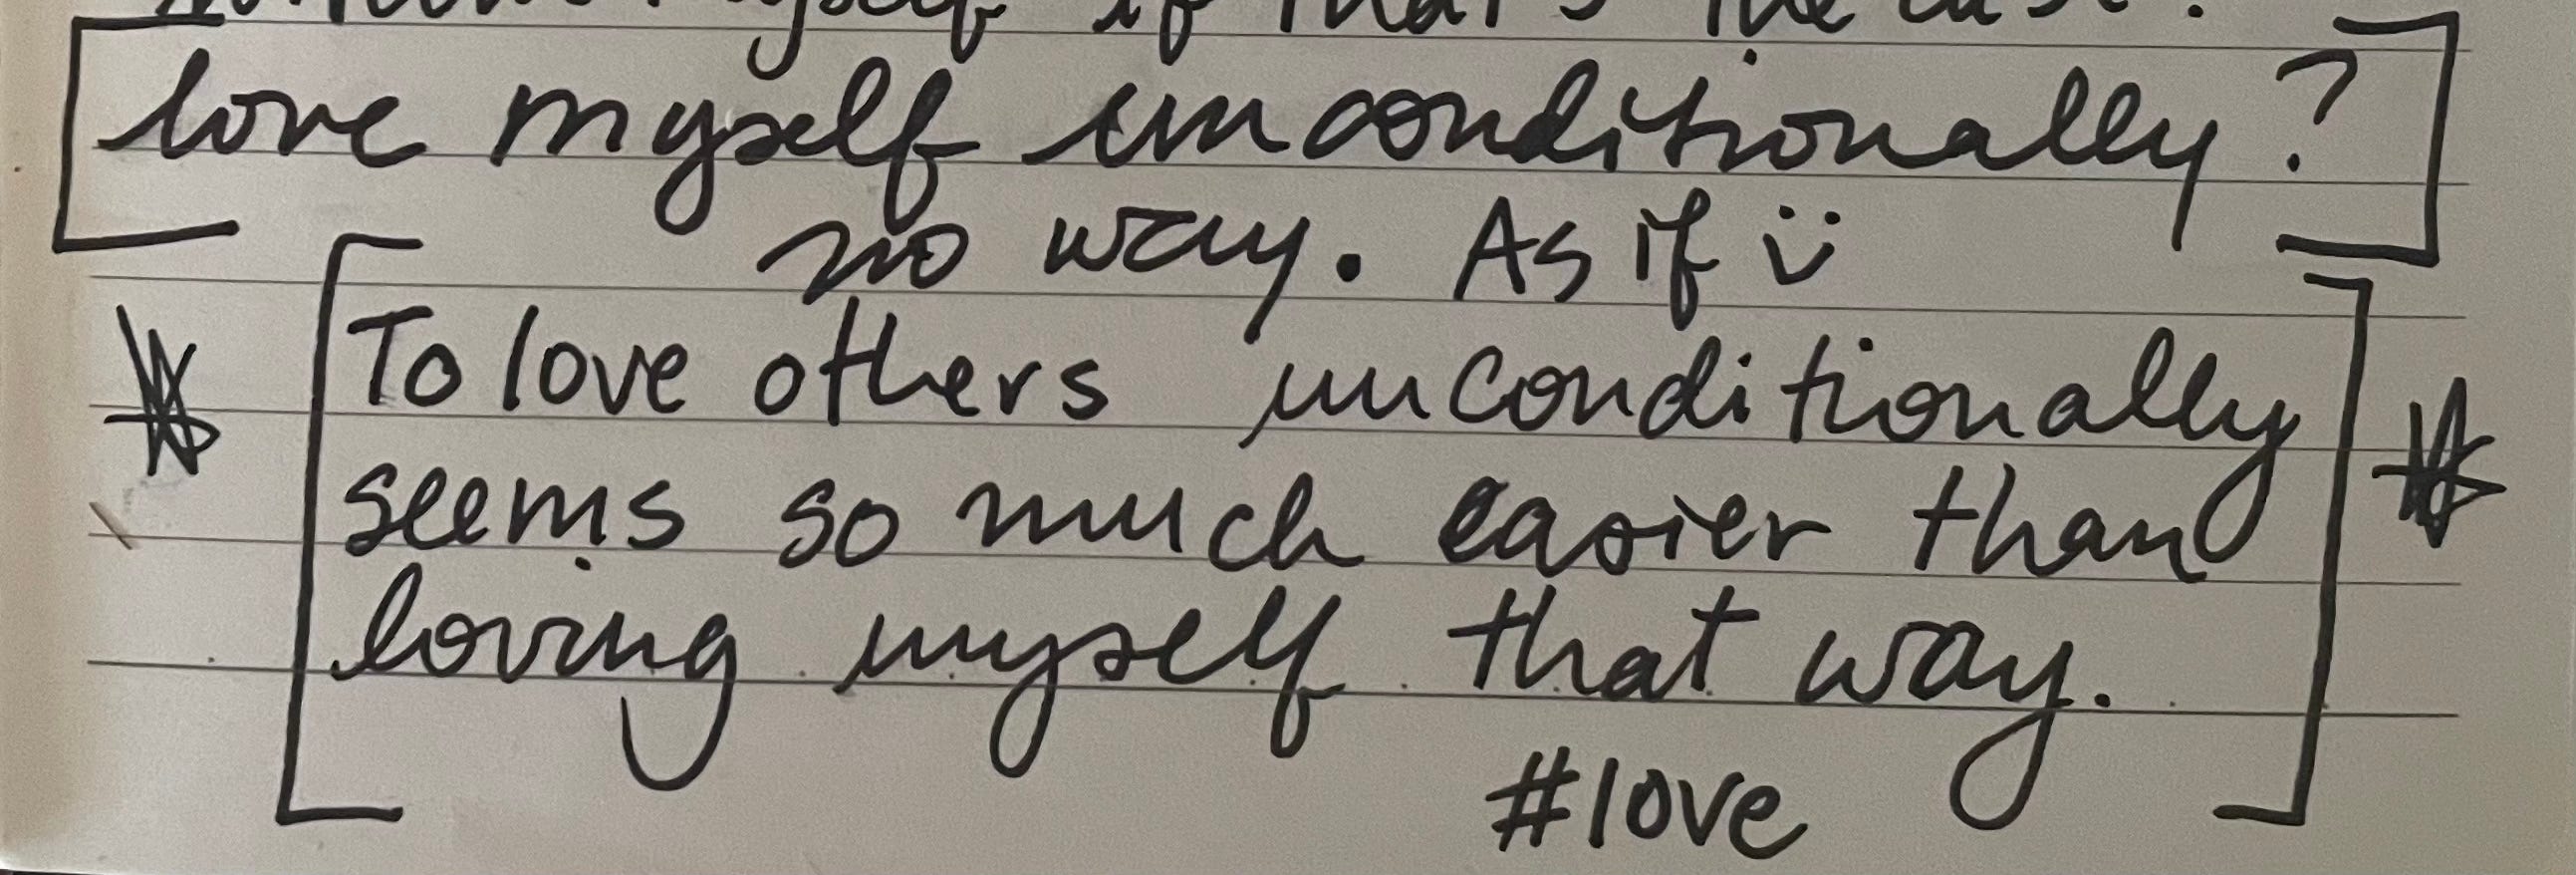 myself if that's the case?
[love myself unconditionally?]
no way. As if ü
[To love others unconditionally
seems so much easier than
loving myself that way.]
#love